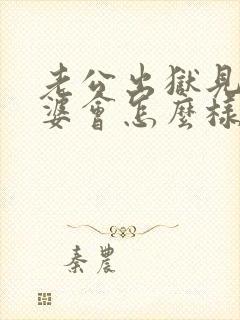 老公出獄見
婆會怎麼樣
秦農